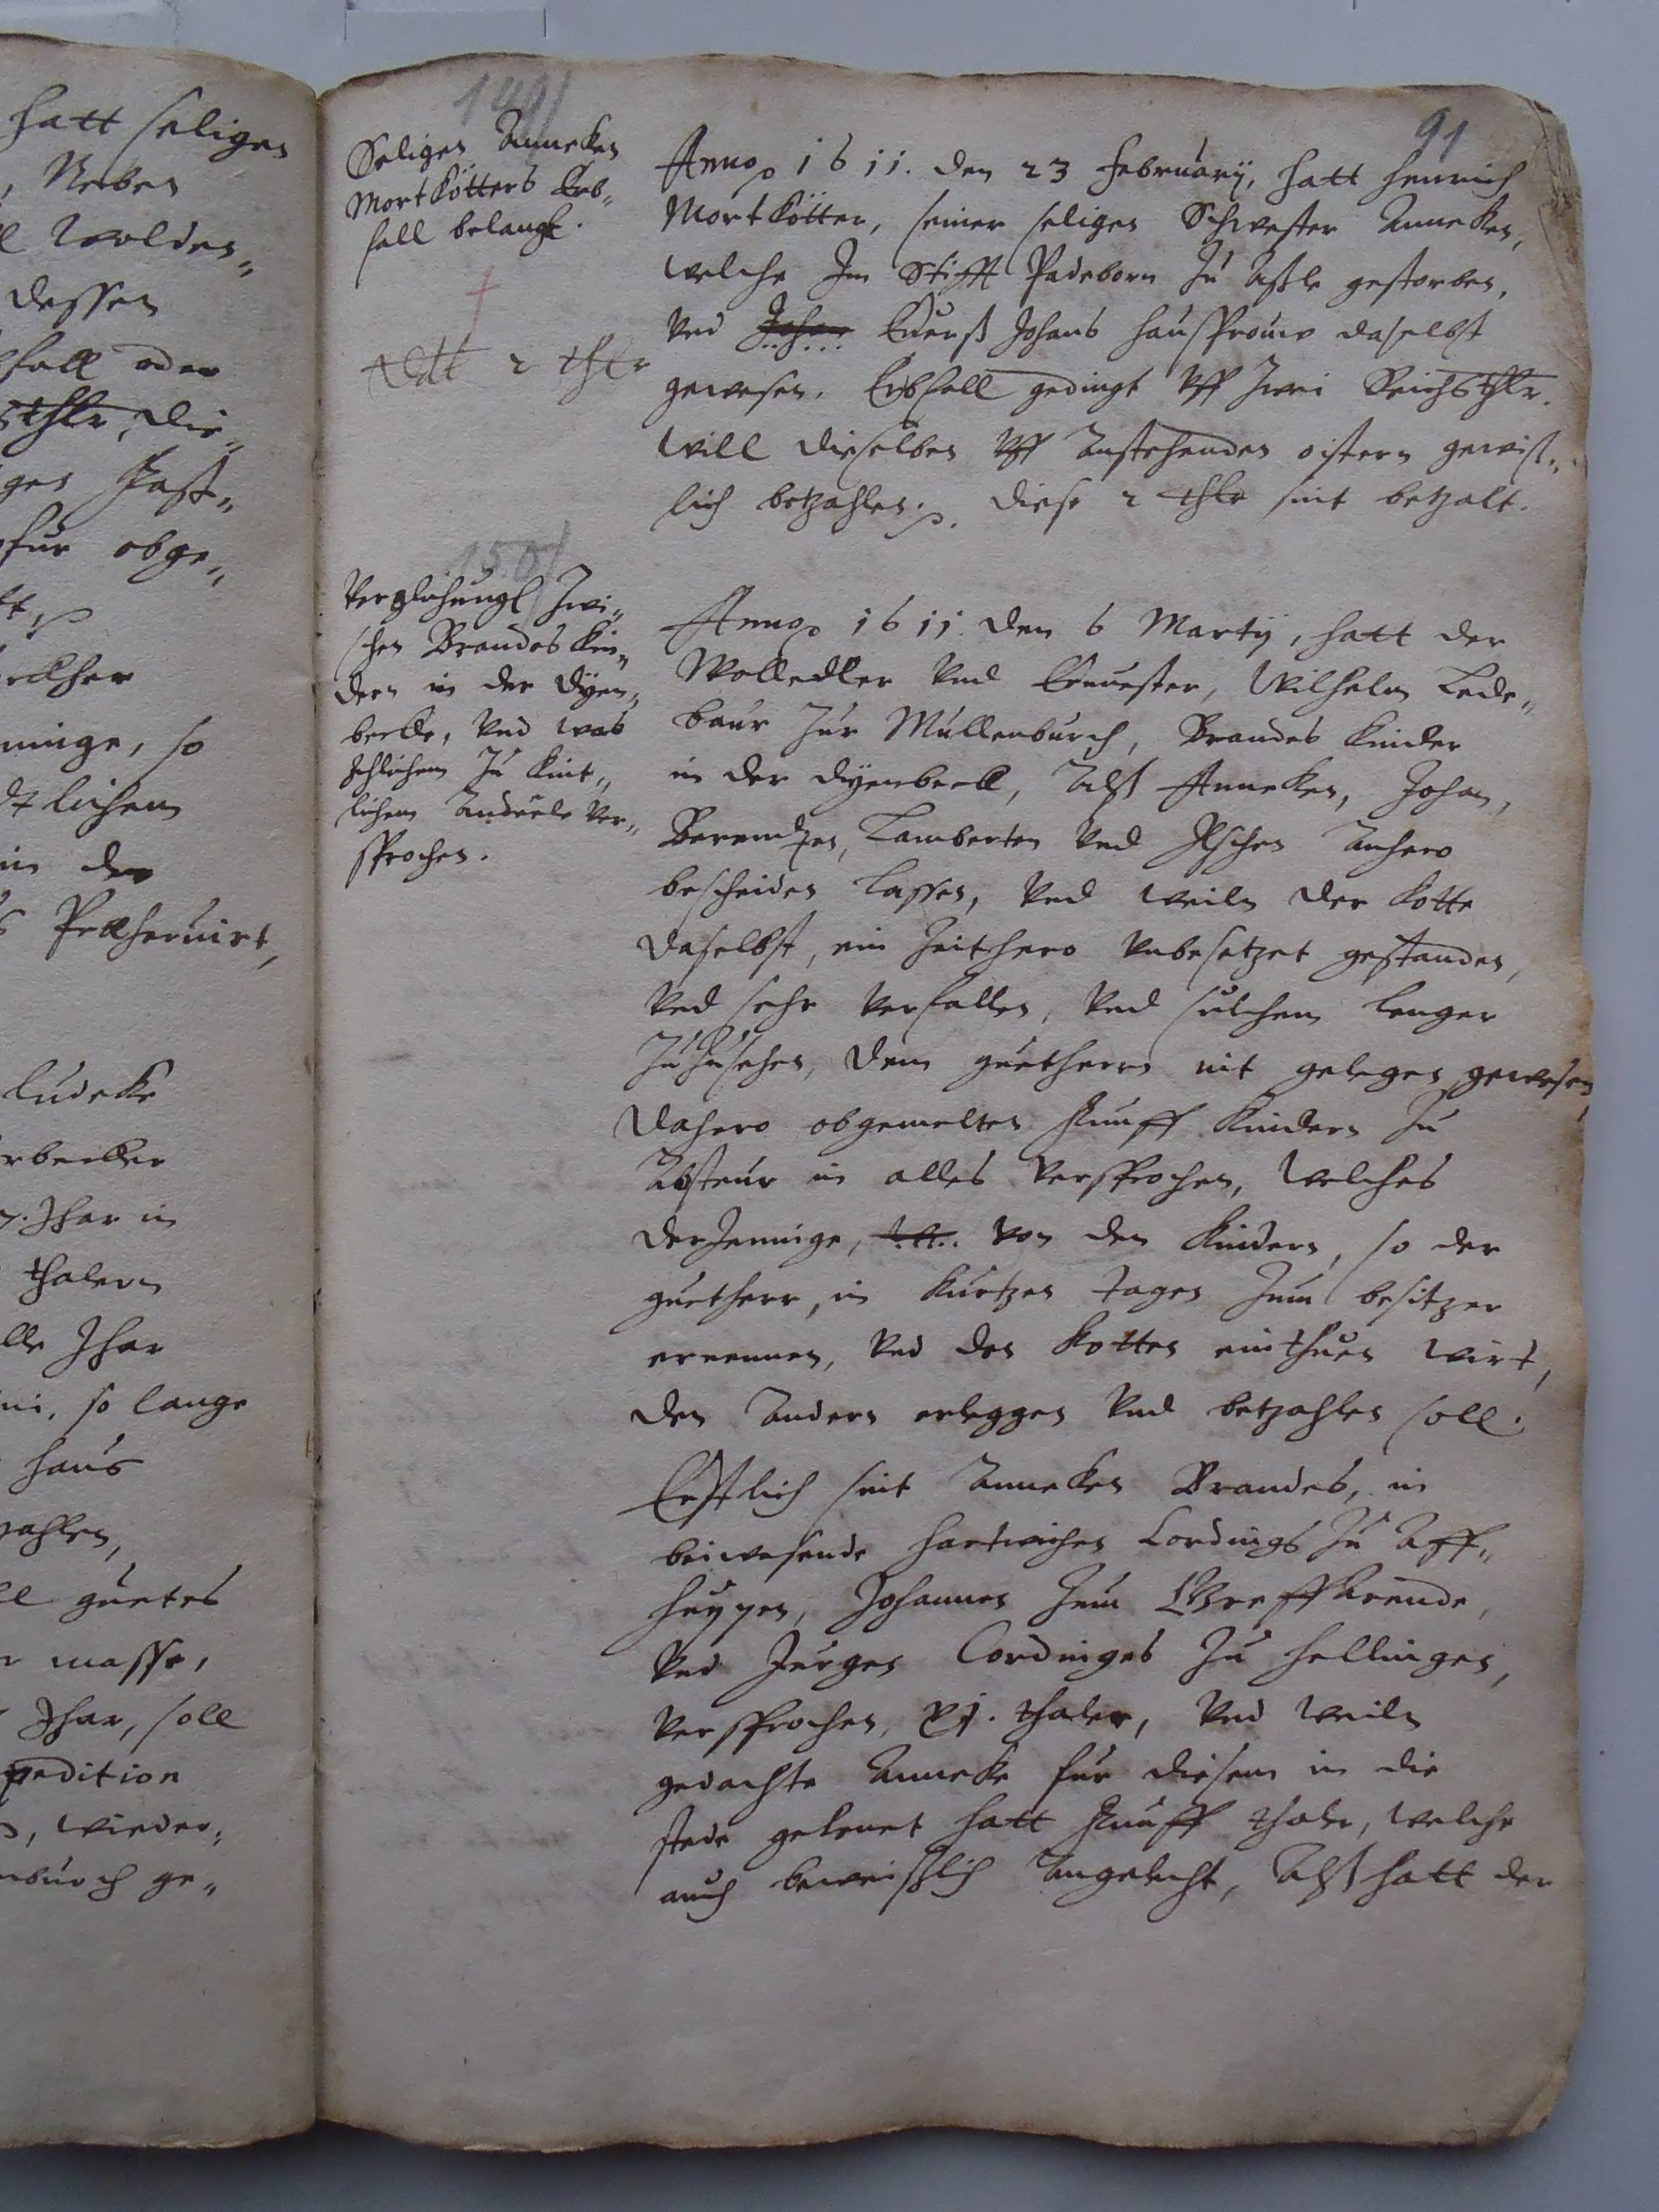 hatt seligen
, Neben
woldes„
dessen
fall oder
thlr, die„
ges
fur obge„
ninge, so
lichem
in der
Ludeke
rbecker
Jhar in
thalern
alle Jhar
so lange
haus
zahlen,
guetes
masse,
Jhar, soll
pedition
wieder„
nburch ge„
149
Seligen Anneken
Mortkötters Erb„
fall belangt.
dt 2 thlr
150
Verglichungh zwi„
schen Brandes kin„
dern in der Dyen„
becke, und was
Jtzlichem zu kint„
lichem Andeele ver„
sprochen.
91
Anno 1611. den 23 February, hatt Henrich
Mortkötter, seiner seligen Schwester Anneken,
welche Im Stifft Padeborn zu gestorben,
und Johan Euerß Johans haussfrouw daselbst
gewesen. Erbfall gedingt uff zwei Reichsthlr.
will dieselben uff anstehenden oistern gewiß„
lich betzahlen. diese 2 thlr sint betzalt.
Anno 1611. den 6 Marty, hatt der
Wolledler und Ernuester, Wilhelm Lede„
baur zur Mullenburch, Brandes Kinder
in der dyenbeck, Alß Anneken, Johan,
Berendten, Lamberten und Ilschen anhero
bescheiden lassen, und weiln der kotte
daselbst, ein zeithero unbesetzet gestanden,
und sehr verfallen, und sulchem lenger
zuzusehen, dem guetherrn nit gelegen gewesen,
dahero obgemelten funff Kindern zu
Absteur in alles versprochen, welches
derJennige, von den Kindern, so der
guetherr, in kurtzen tagen zum besitzer
ernennen, und den kotten einthuen wirt,
den andern erleggen und betzahlen soll.
Erstlich sint Anneken Brandes, in
beiwesende Hartwiches Cordings zu Aff„
huppen, Johannes zum ,
und Jurgen Cordinges zu Hellingen,
versprochen, xj. thaler, und weiln
gedachte Anneke fur diesem in die
stede gelenet hatt funff thaler, welche
auch beweißlich angelecht, Alß hatt der